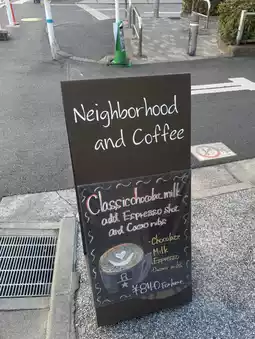 Neighborhood
and Coffee
Classic chocolate milk
add Espresso shot
and Cacao nibs
-Chocolate
Milk
Espresso
Cacao nibs
¥840